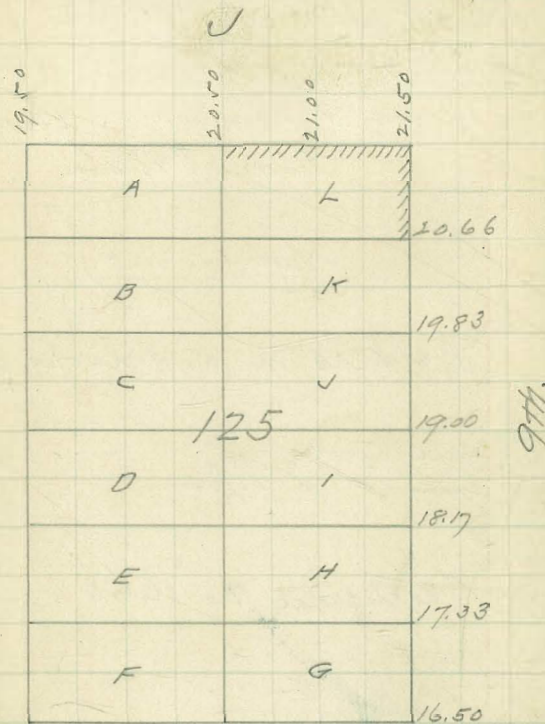 J
19.50 20.50 21.00 21.50
A L
20.66
B K
19.83
C J
125 19.00
9th.
D I
18.17
E H
17.33
F G
16.50